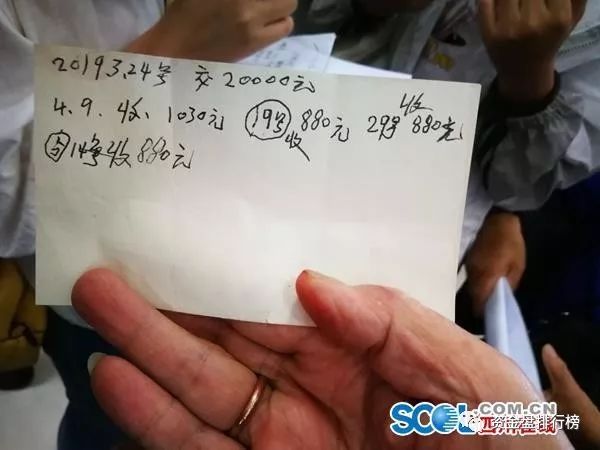 2019 3.24号 交 20000元
收
4.9.收.1030元 19号 880元 29号 880元
收
5 14号收 880元
SCOL.COM.CN
四川在线
资金盘排行榜